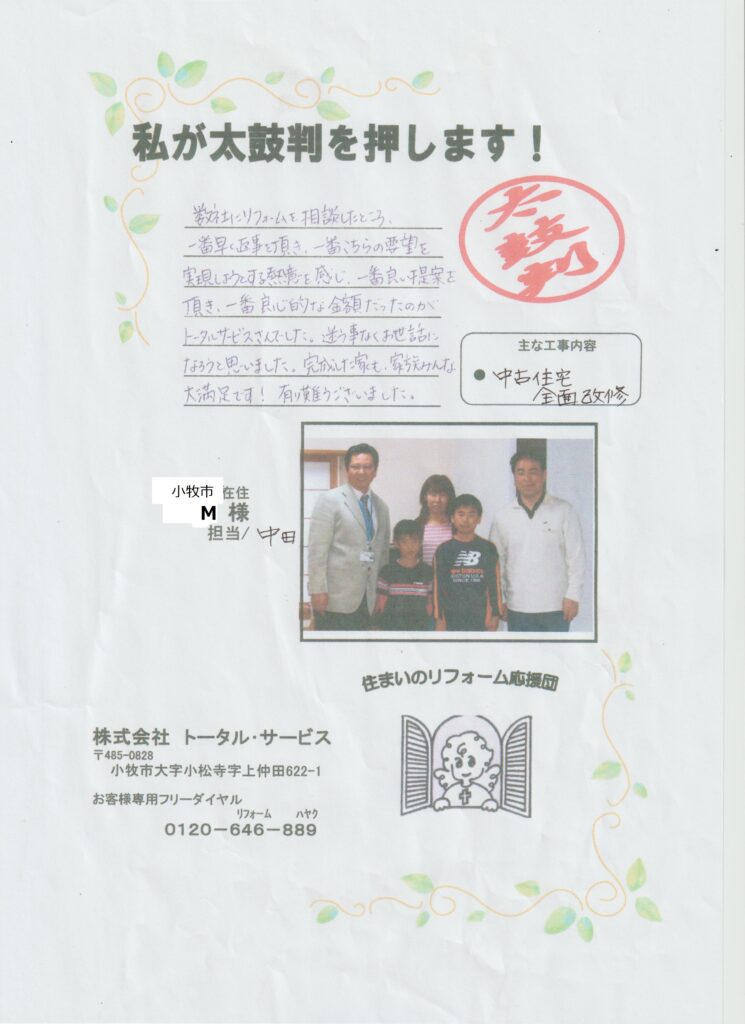 私が太鼓判を押します！
太鼓判
数社にリフォームを相談したところ、
一番早く返事を頂き、一番こちらの要望を
実現しようとする熱意を感じ、一番良い提案を
頂き、一番良心的な金額だったのが
トータルサービスさんでした。迷う事なくお世話に
なろうと思いました。完成した家も、家族みんな
大満足です！ 有り難うございました。
主な工事内容
● 中古住宅
全面改修
小牧市 在住
M 様
担当/ 中田
NB
new balance
BOSTON U.S.A.
SINCE 1906
住まいのリフォーム応援団
株式会社 トータル・サービス
〒485-0828
小牧市大字小松寺字上仲田622-1
お客様専用フリーダイヤル
リフォーム ハヤク
0120-646-889